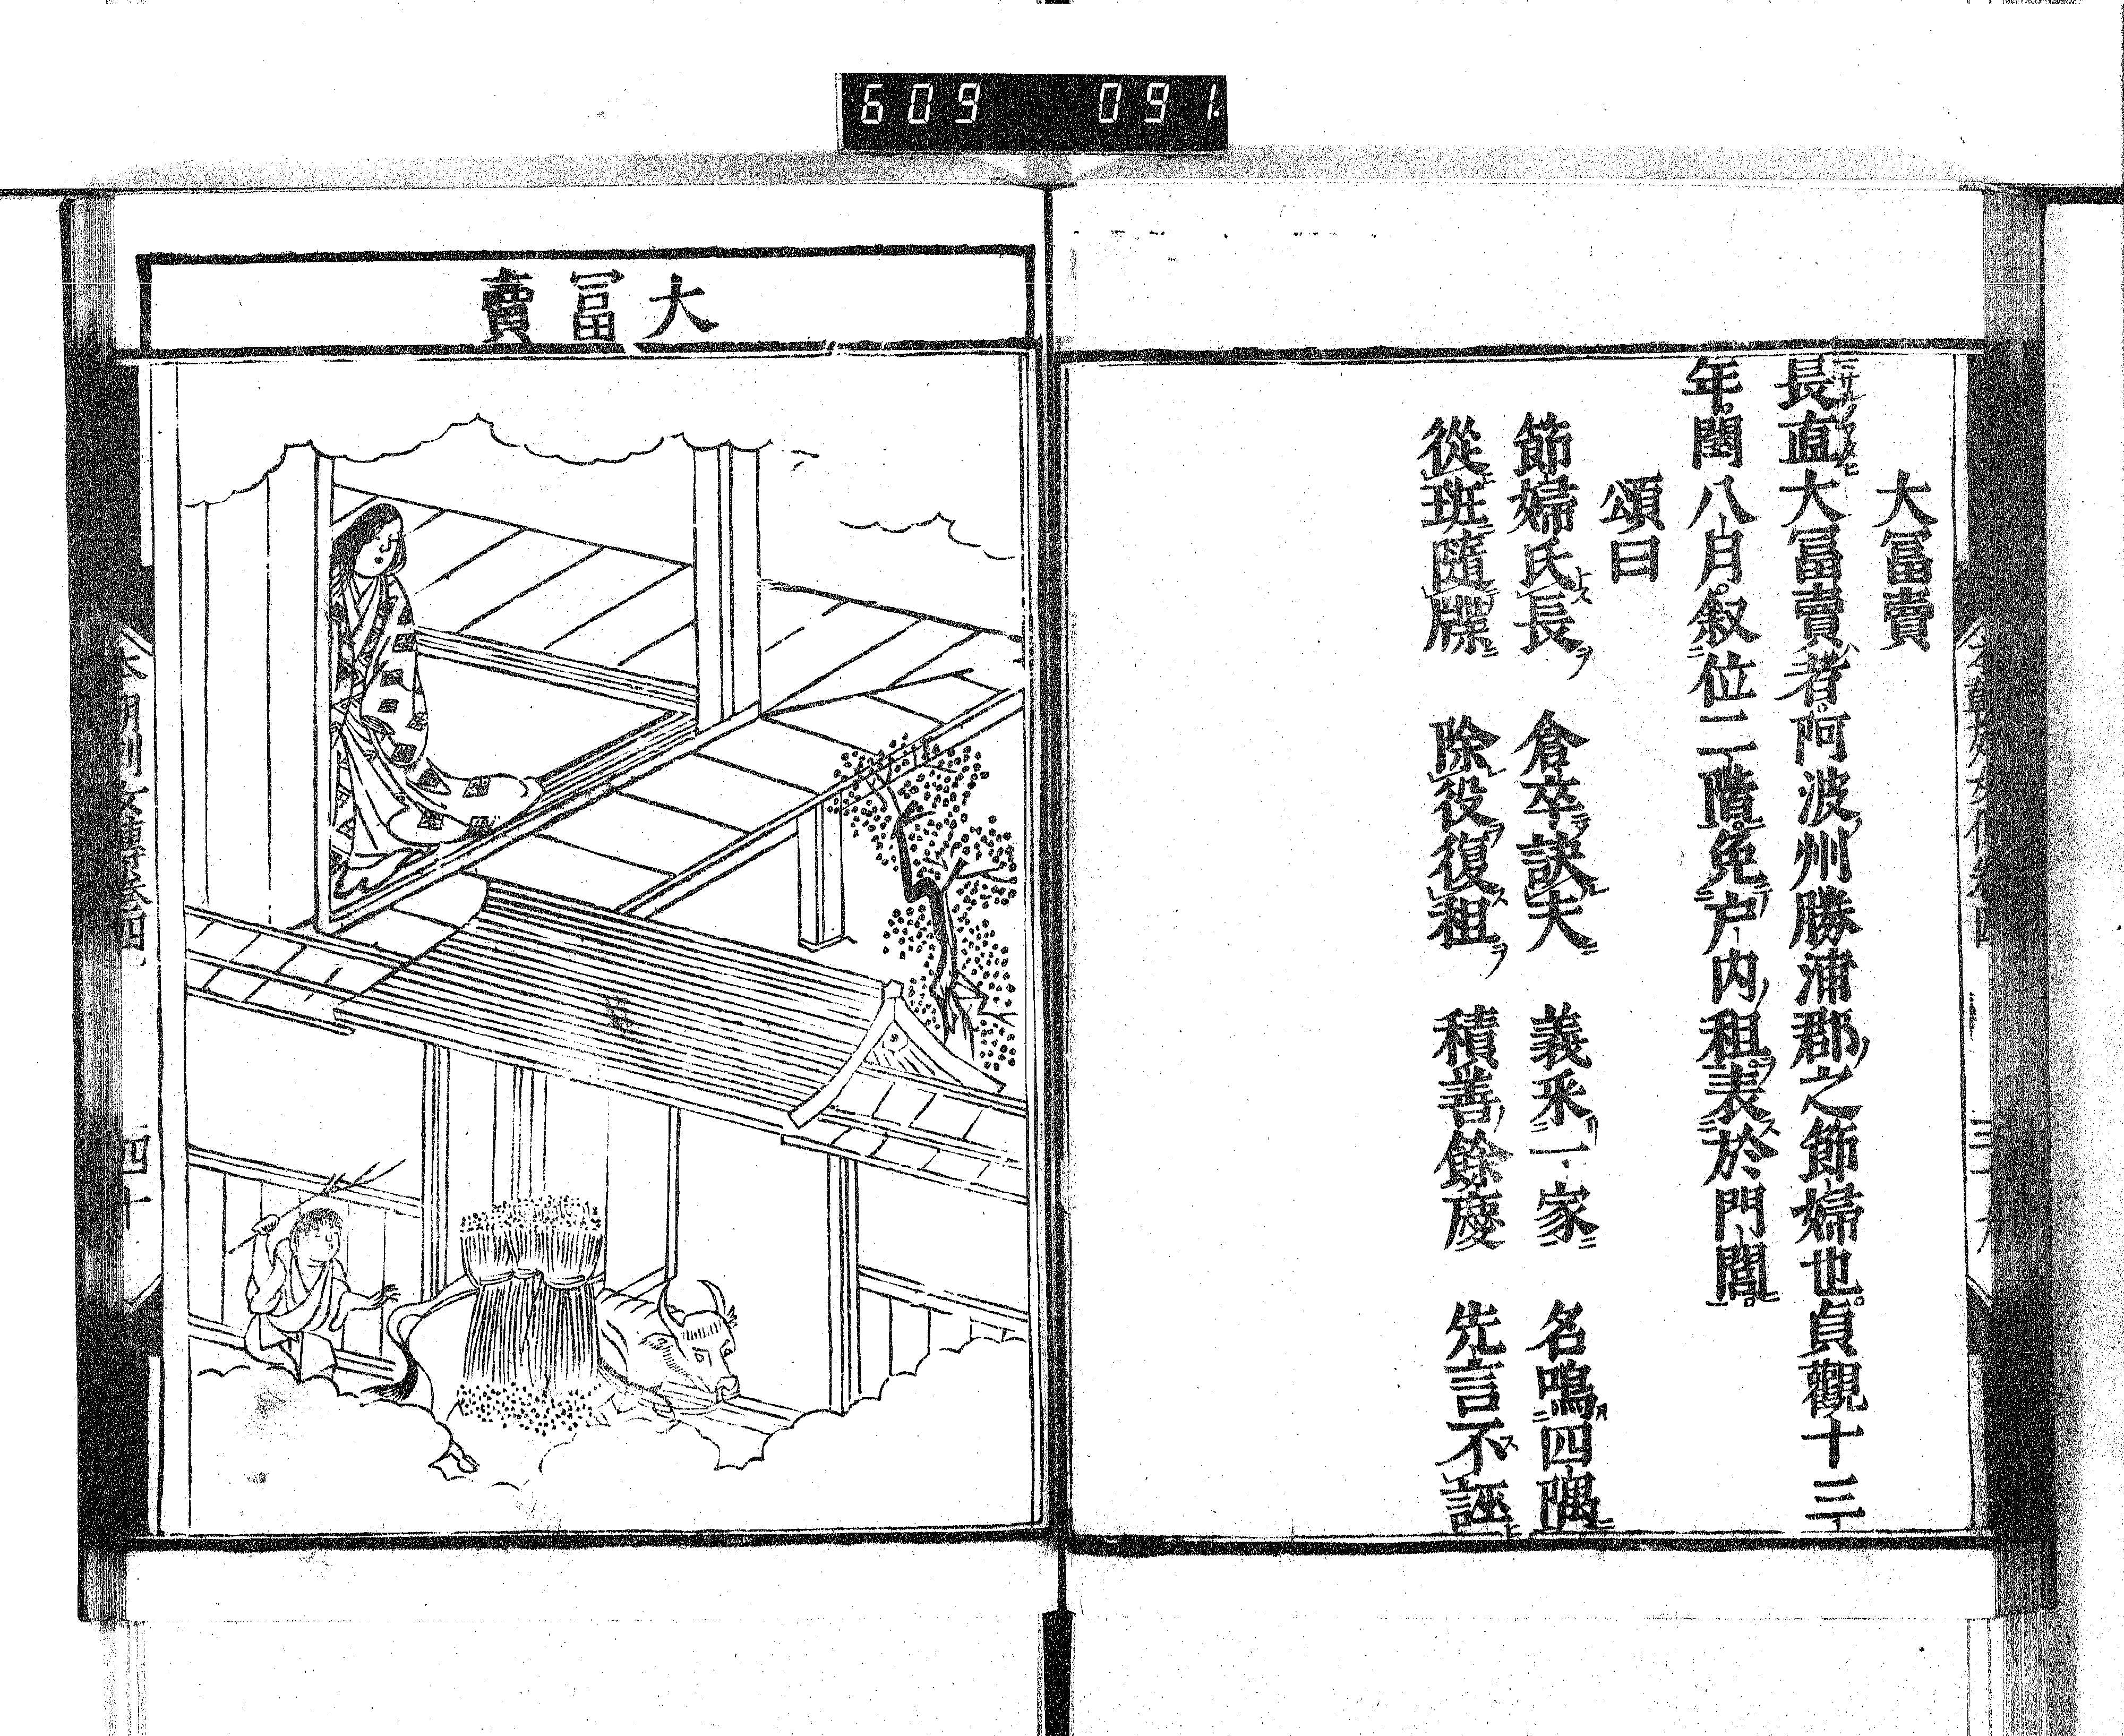 609 091.
大冨賣
長直大冨賣者阿波州勝浦郡之節婦也貞觀十三
年閏八月叙位二階免户内租表於門閭
頌曰
節婦氏長 倉卒訣夫 義釆一家 名鳴四隅
從班隨牒 除役復租 積善餘慶 先言不誣
大冨賣
本朝列女傳卷四 四十